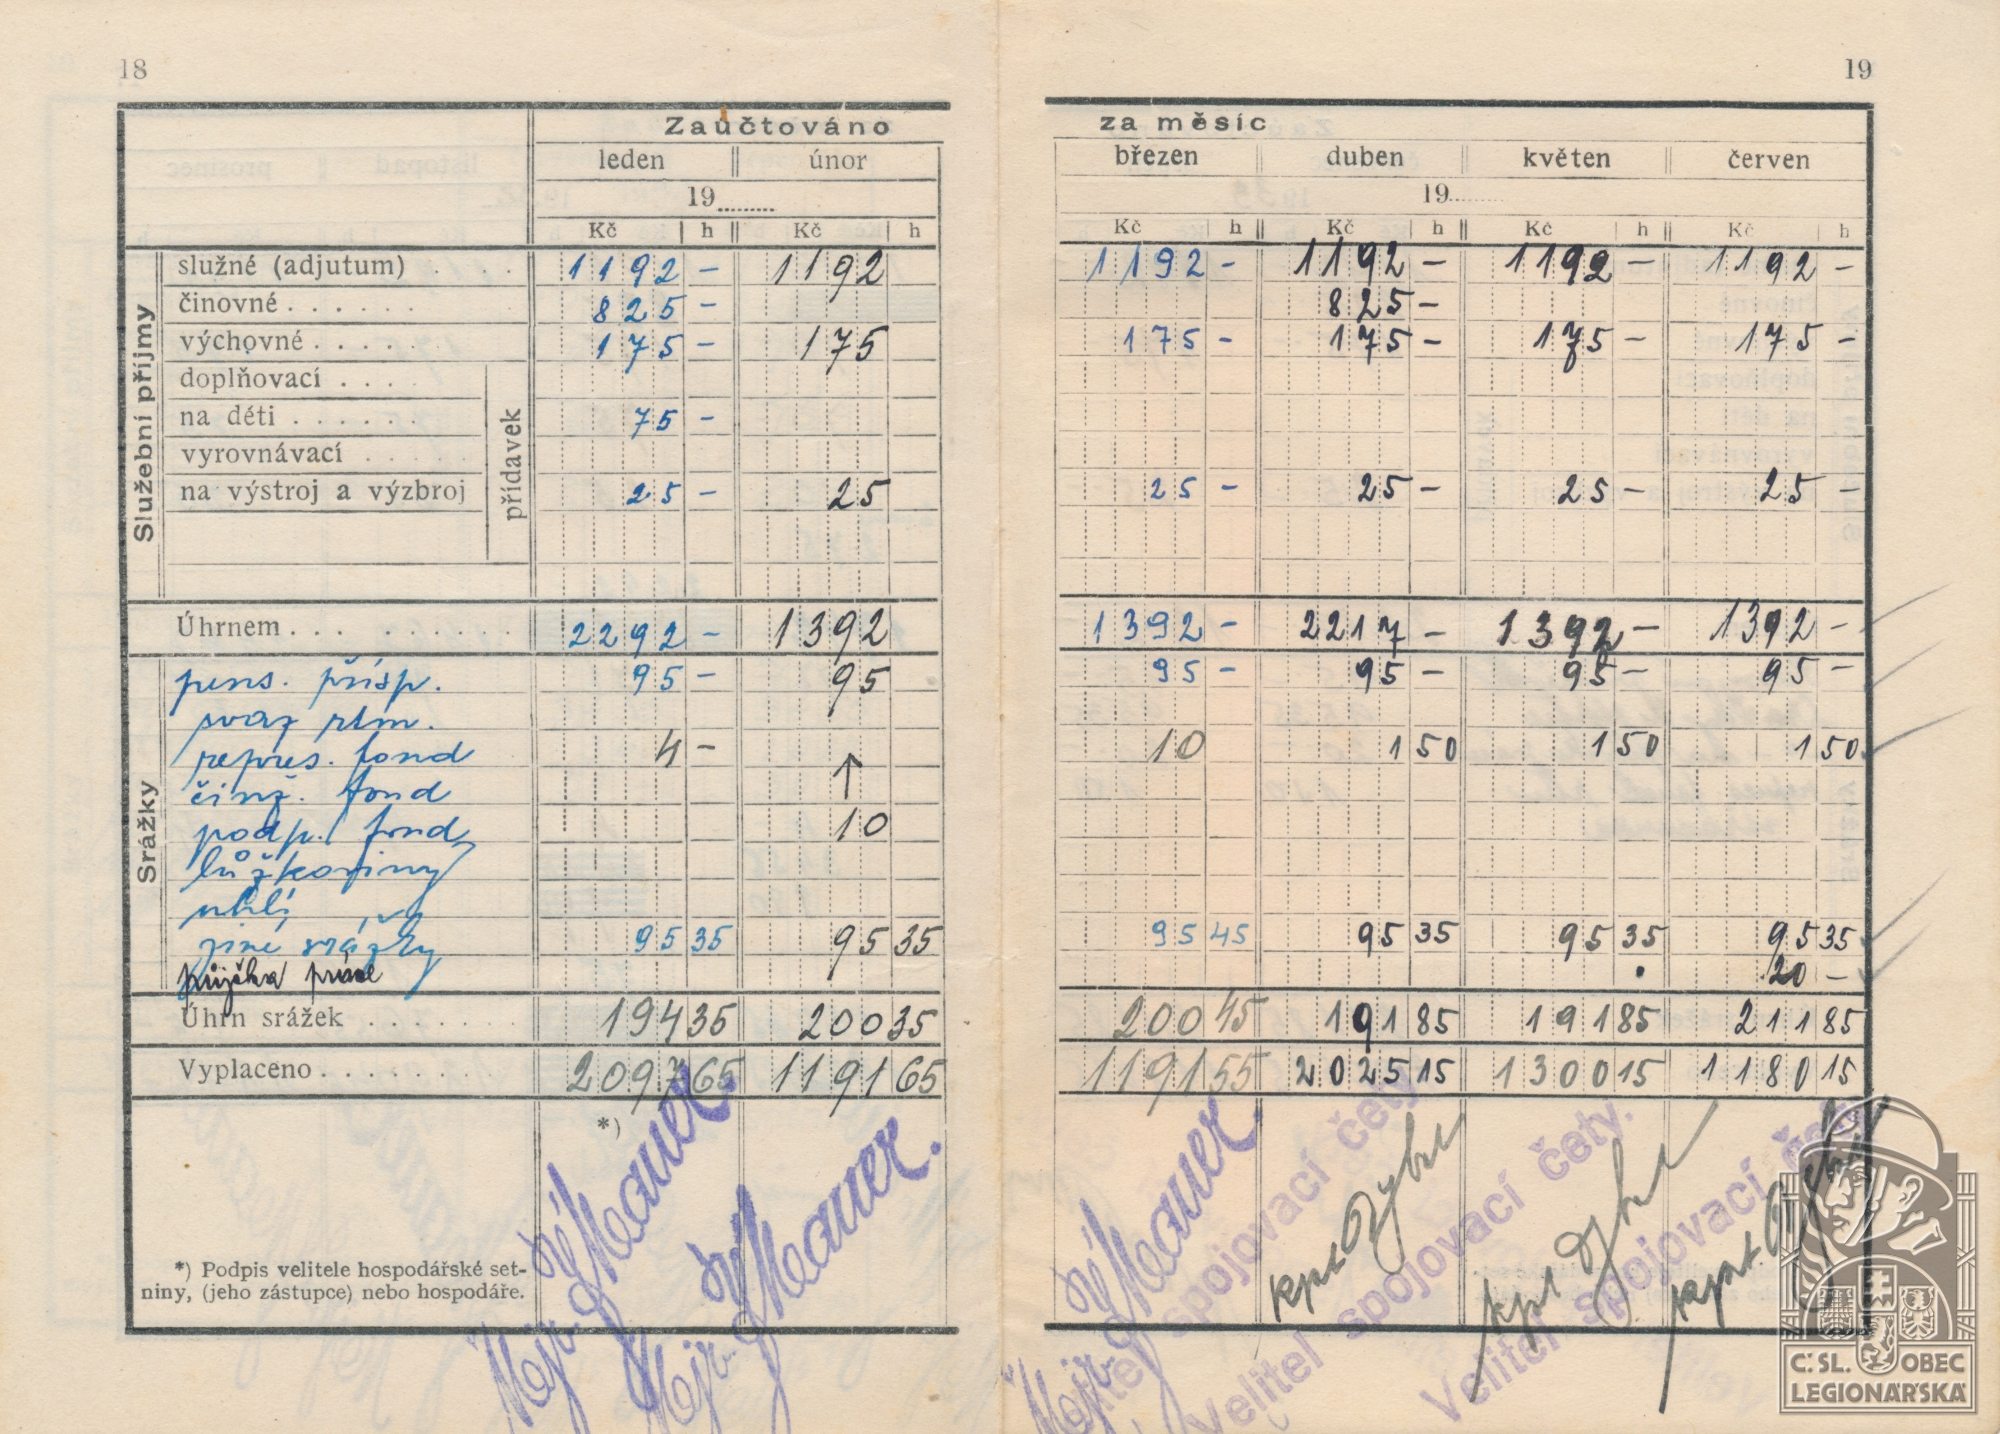 18
19
Zaúčtováno za měsíc
leden únor březen duben květen červen
19........ 19........
Kč h Kč h Kč h Kč h Kč h Kč h
Služební příjmy
služné (adjutum) 1192 – 1192 1192 – 1192 – 1192 – 1192 –
činovné 825 – 825 –
výchovné 175 – 175 175 – 175 – 175 – 175 –
doplňovací
na děti 75 –
vyrovnávací
na výstroj a výzbroj 25 – 25 25 – 25 – 25 – 25 –
přídavek
Úhrnem 2292 – 1392 1392 – 2217 – 1392 – 1392 –
Srážky
pens. přísp. 95 – 95 95 – 95 – 95 – 95 –
svaz rtm.
repres. fond 4 – 10 1 50 1 50 1 50
činž. fond
podp. fond 10
lůžkoviny
uhlí
jiné srážky 95 35 95 35 95 45 95 35 95 35 95 35
půjčka 20 –
Úhrn srážek 194 35 200 35 200 45 191 85 191 85 211 85
Vyplaceno 2097 65 1191 65 1191 55 2025 15 1300 15 1180 15
*)
*) Podpis velitele hospodářské set-
niny, (jeho zástupce) nebo hospodáře.
Velitel spojovací čety.
Velitel spojovací čety.
Velitel spojovací čety.
kpt
kpt
kpt.
Č.SL. OBEC
LEGIONÁŘSKÁ